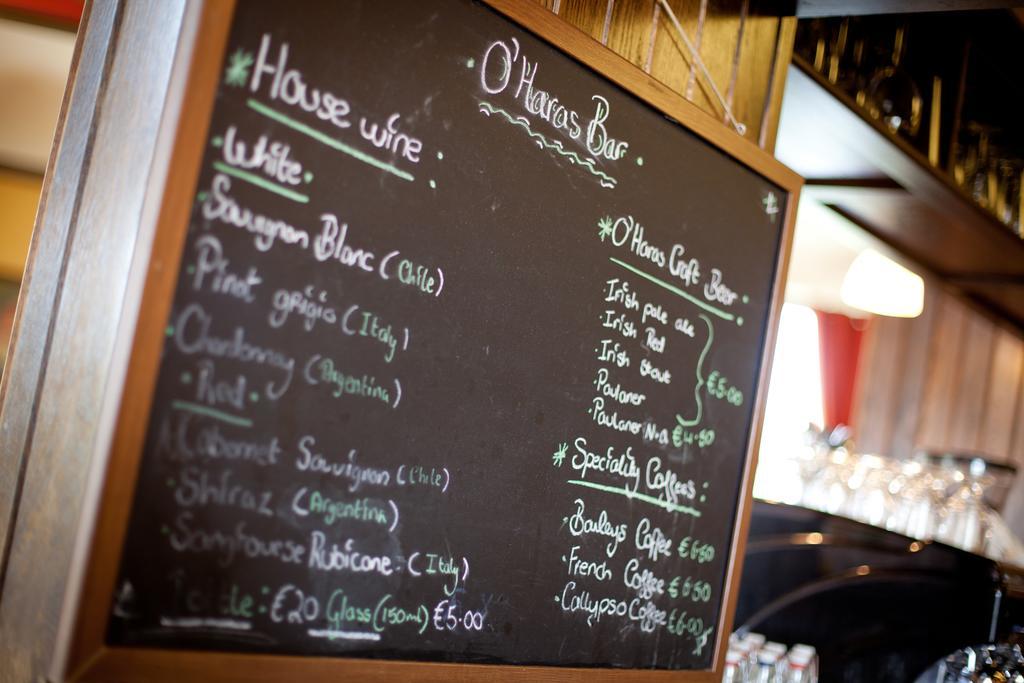 O'Haras Bar
* House wine
White
Sauvignon Blanc (Chile)
Pinot grigio (Italy)
Chardonnay (Argentina)
Red
Cabernet Sauvignon (Chile)
Shiraz (Argentina)
Rubicone (Italy)
€20 Glass (150ml) €5.00
* O'Haras Craft Beer
Irish pale ale
Irish Red
Irish stout
Paulaner
€5.00
Paulaner N.A. €4.50
* Speciality Coffees:
Baileys Coffee €6.50
French Coffee €6.50
Callypso Coffee €6.00